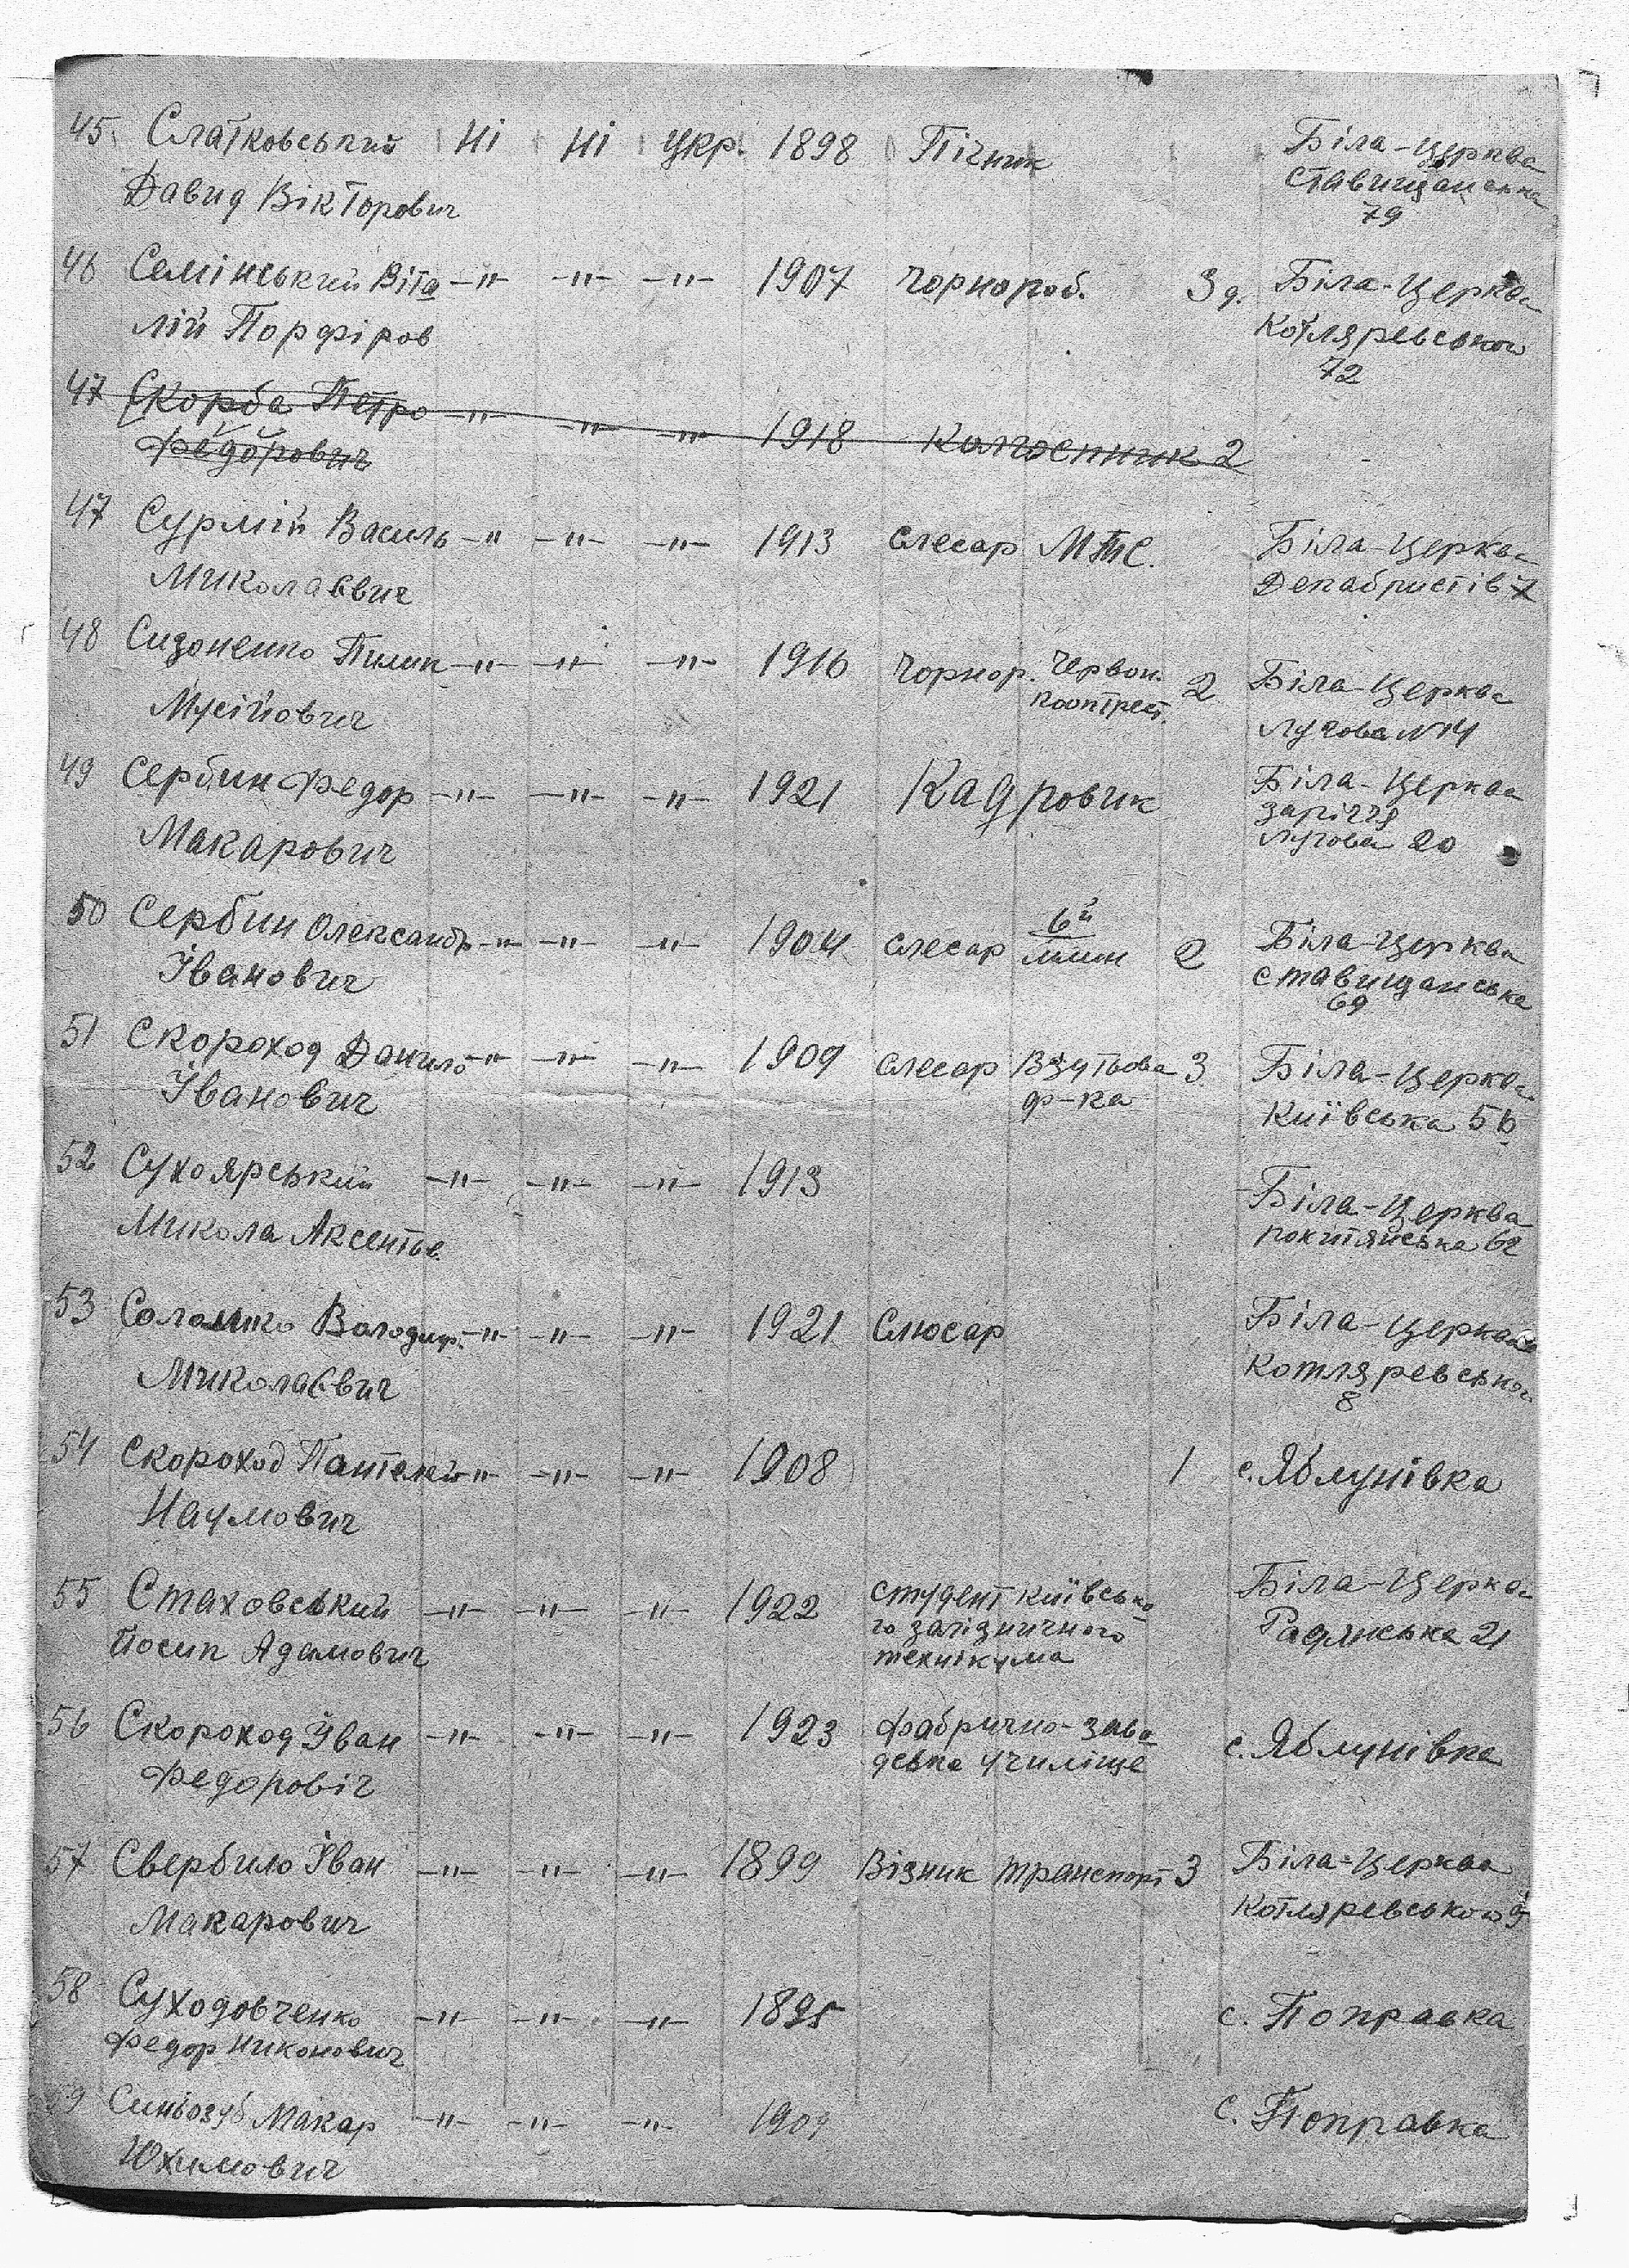 45 Слатковський Ні Ні Укр. 1898 Пічник Біла-Церква
Давид Вікторович Ставищанська
79
46 Семінський Віта -"- -"- -"- 1907 чорнороб. 3 д. Біла-Церква
лій Порфіров Котляревського
72
47 Скорба Петро -"- -"- -"- 1918 Колгоспник 2
Федорович
47 Сурмій Василь -"- -"- -"- 1913 слесар МТС. Біла-Церква
Миколаєвич Декабристів 7
48 Сидоненко Пилип -"- -"- -"- 1916 чорнор. Червон. 2 Біла-Церква
Мусійович Лугова №14
49 Сербин Федор -"- -"- -"- 1921 Кадровик Біла-Церква
заріччя
Макарович Лугова 20
50 Сербин Олександр -"- -"- -"- 1904 слесар 6й млин 2 Біла-Церква
Іванович Ставищанська
69
51 Скороход Данило -"- -"- -"- 1909 слесар Взутьова 3 Біла-Церква
Іванович ф-ка Київська 56
52 Сухоярський -"- -"- -"- 1913 Біла-Церква
Микола Аксентьв. рокитянська 62
53 Саломко Володим. -"- -"- -"- 1921 Слюсар Біла-Церква
Миколаєвич Котляревського
8
54 Скороход Пантелій -"- -"- -"- 1908 1 с. Яблунівка
Наумович
55 Стаховський -"- -"- -"- 1922 студент Київсько Біла-Церква
го залізничного Радянська 21
Йосип Адамович технікума
56 Скороход Іван -"- -"- -"- 1923 фабрично-заво с. Яблунівка
Федоровіч дська училіще
57 Свербило Іван -"- -"- -"- 1899 Візник транспорт 3 Біла-Церква
Макарович Котляревського 9
58 Суходовченко -"- -"- -"- 1895 с. Поправка
Федор Никонович
59 Синьозуб Макар -"- -"- -"- 1909 с. Поправка
Юхимович